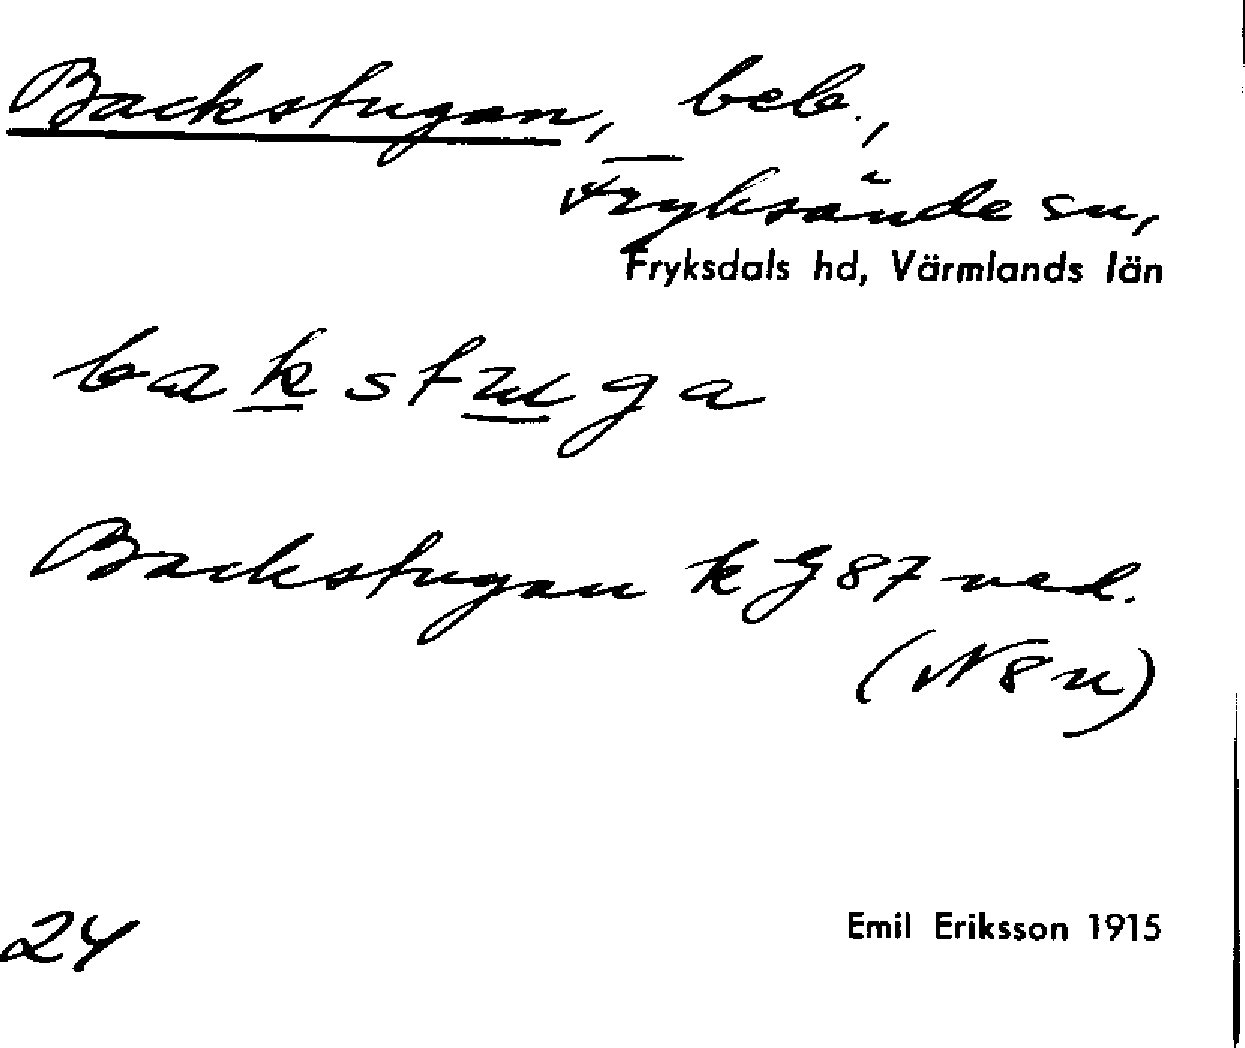 Backstugan, beb.,
Fryksände sn,
Fryksdals hd, Värmlands län
bakstuga
Backstugan k G 87 ned.
(N 8 u)
24
Emil Eriksson 1915